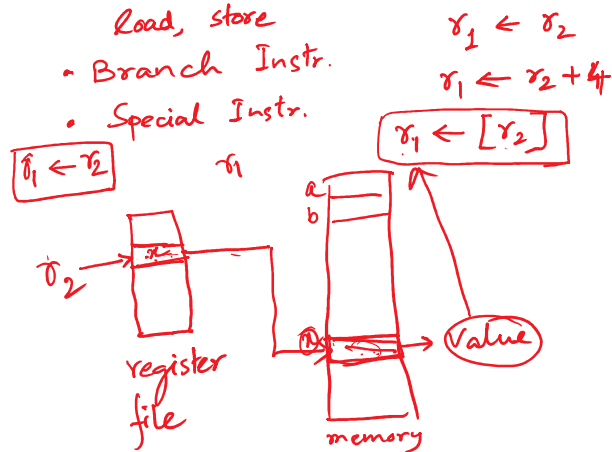 load, store
• Branch Instr.
• Special Instr.
r₁ ← r₂
r₁ ← r₂ + 4
r₁ ← [r₂]
r₁ ← r₂
r₁
a
b
r₂
x
x
Value
register
file
memory